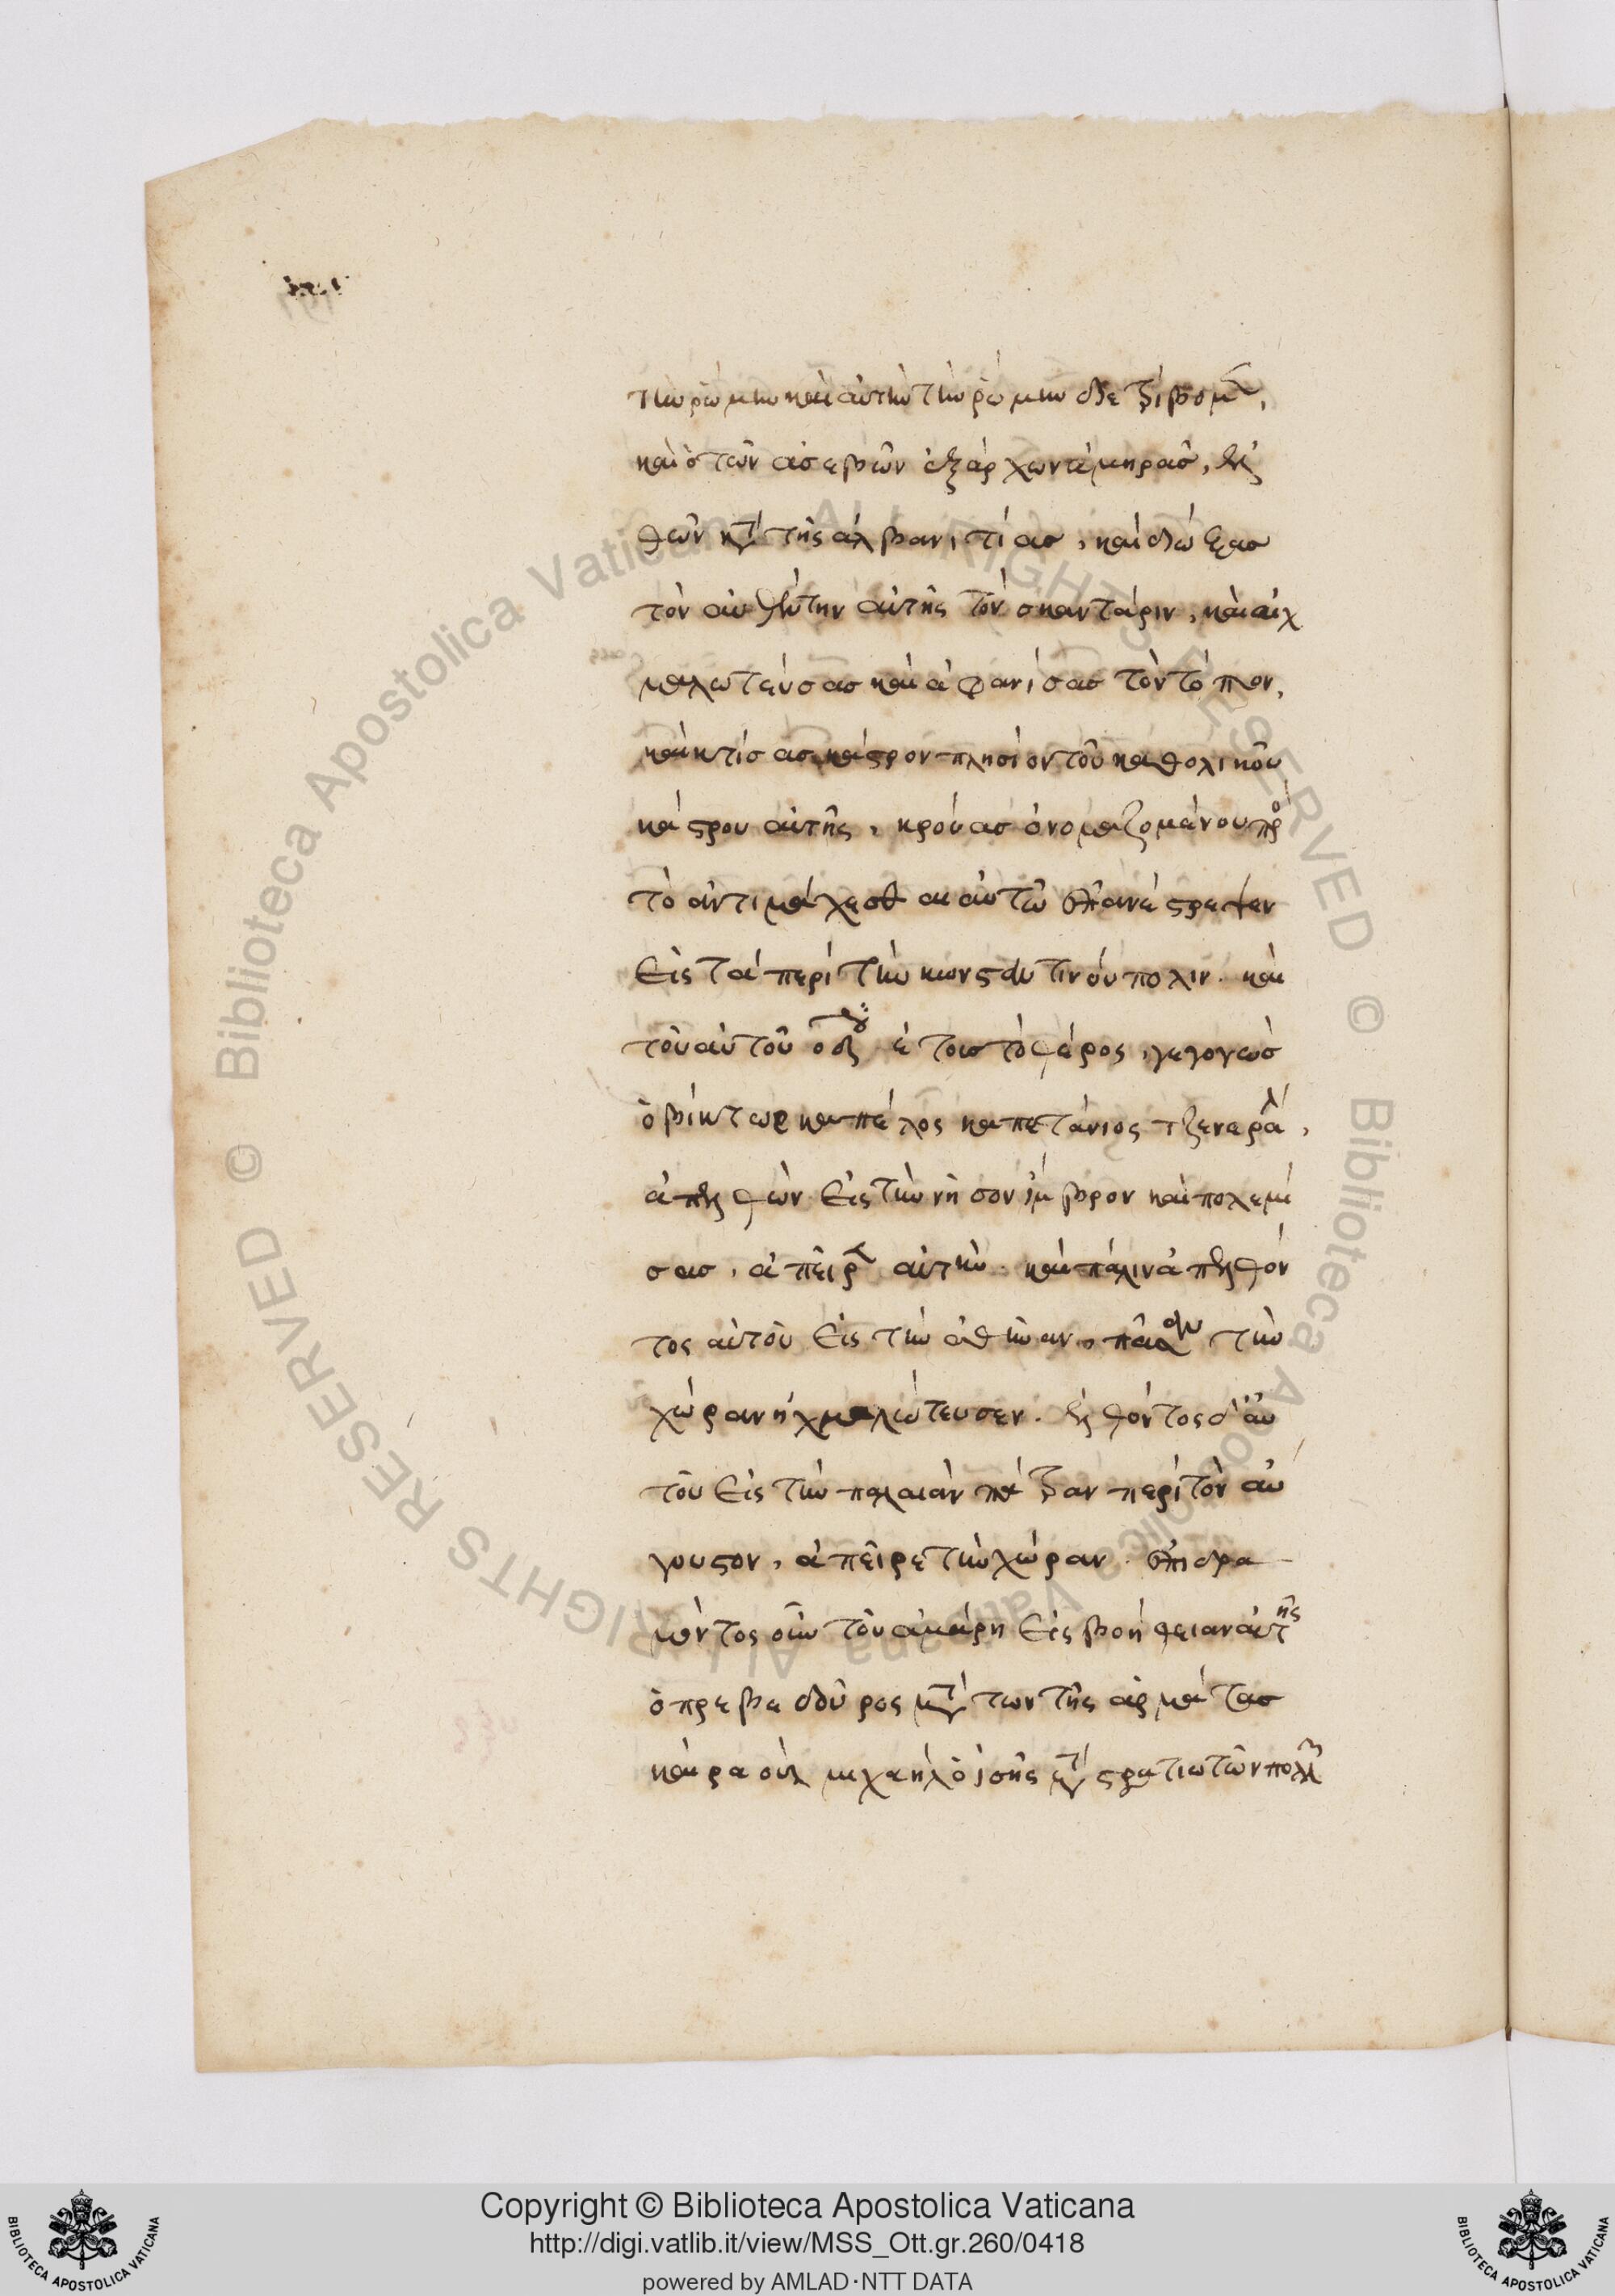 τὴν ῥώμην καὶ αὐτὴν τὴν ῥώμην
καὶ ὁ τῶν ἀσεβῶν ἐξάρχων ἀμηρᾶσ, ἐλ
θὼν κατὰ τῆς ἀλβανιτίασ, καὶ διώξασ
τὸν αὐθέντην αὐτῆς τὸν σκαντάριν, καὶ αἰχ
μαλωτεύσασ καὶ ἀφανίσασ τὸν τόπον,
καὶ κτίσασ κάστρον πλησίον τοῦ καθολικοῦ
κάστρου αὐτῆς, κρούασ ὀνομαζομένου πρὸ
τὸ ἀντιμάχεσθαι αὐτῶ ἐπανέστρεψεν
Εἰς τὰ περὶ τὴν κωνσταντινούπολιν. καὶ
τοῦ αὐτοῦ ἔτουσ τὸ θέρος, γεγονὼσ
ὁ βίκτωρ καπέλος καπετάνιος τζενεράλ,
ἀπελθὼν Εἰς τὴν νῆσον ἴμβρον καὶ πολεμί
σασ, ἀπεῖρεν αὐτήν. καὶ πάλιν ἀπελθόν
τος αὐτοῦ Εἰς τὴν ἀθήναν, πᾶσαν τὴν
χώραν ἠχμαλώτευσεν. ἐλθόντος δ' αὐ
τοῦ Εἰς τὴν παλαιὰν πάτραν περὶ τὸν αὔ
γουστον, ἀπεῖρε τὴν χώραν. ἐπιδρα
μόντος οὖν τοῦ ἀμάρη Εἰς βοήθειαν αὐτῆς
ὁ πρεβεδοῦρος μετὰ των τῆς ἀρμάτασ
καὶ ραοὺλ μιχαὴλ ὁ ἰσῆς μετὰ στρατιωτῶν πολλῶν